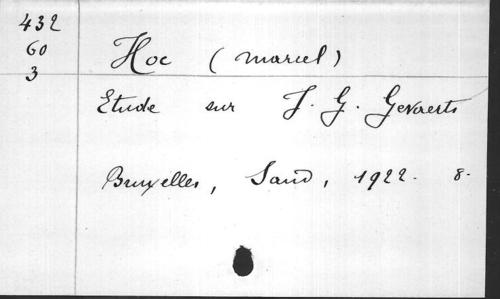 432
60
3
Hoc (Marcel)
Etude sur J. G. Gevaerts
Bruxelles, Sand, 1922. 8.